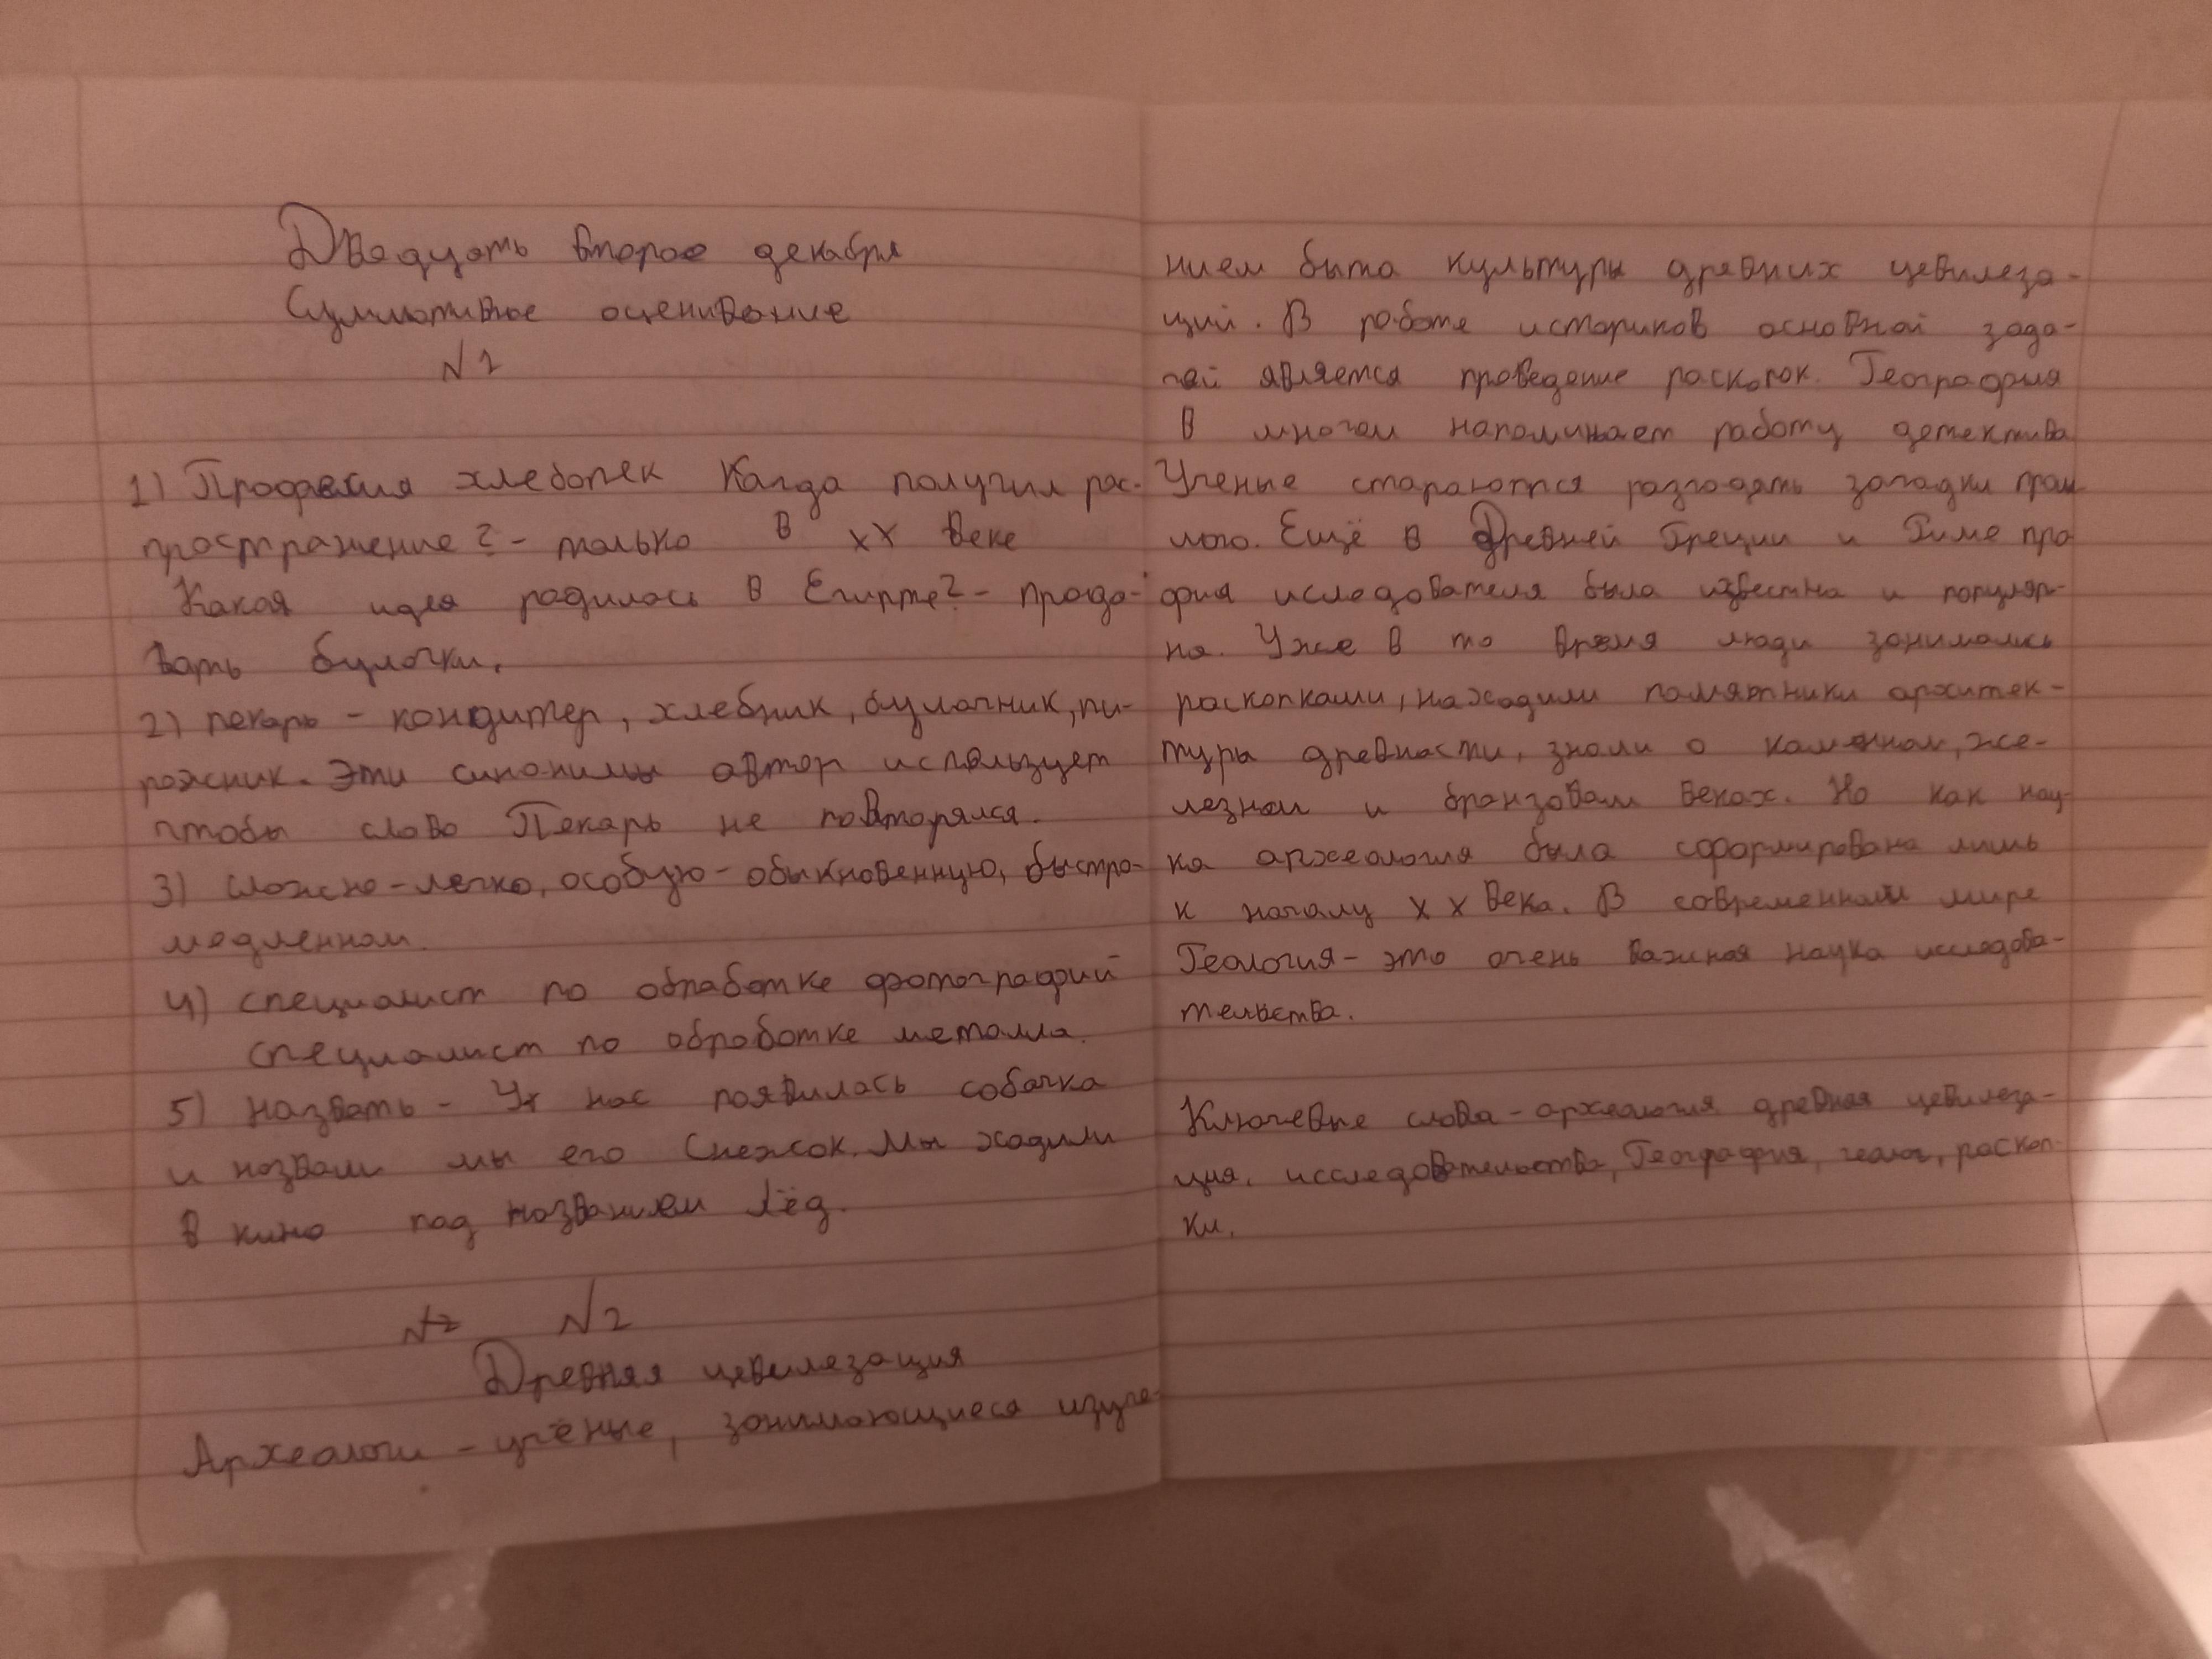 Двадцать второе декабря
Суммативное оценивание
№1
1) Профессия хлебопек Когда получил рас-
простражение? - только в XX веке
Какая идея родилась в Египте? - прода-
вать булочки.
2) пекарь - кондитер, хлебник, булочник, пи-
рожник. Эти синонимы автор использует
чтобы слово Пекарь не повторялся.
3) сложно - легко, особую - обыкновенную, быстро-
медленном.
4) специалист по обработке фотографий
специалист по обработке металла.
5) назвать - У нас появилась собачка
и назвали мы его Снежок. Мы ходили
в кино под названием Лёд.
№2 №2
Древняя цевилезация
Археологи - учёные, занимающиеся изуче-
нием быта культуры древних цевилеза-
ций. В работе историков основной зада-
чей является проведение раскопок. География
в многом напоминает работу детектива
Ученые стараются разгодать загадки прош
лого. Ещё в Древней Греции и Риме про
фия иследователя была известна и популяр-
на. Уже в то время люди занимались
раскопками, находили памятники архитек-
туры древности, знали о каменном, же-
лезном и бронзовом веках. Но как нау-
ка археология была сформирована лишь
к началу XX века. В современном мире
Геология - это очень важная наука исследова-
тельства.
Ключевые слова - археология древная цевилеза-
ция, исследовательства, География, геолог, раскоп-
ки.